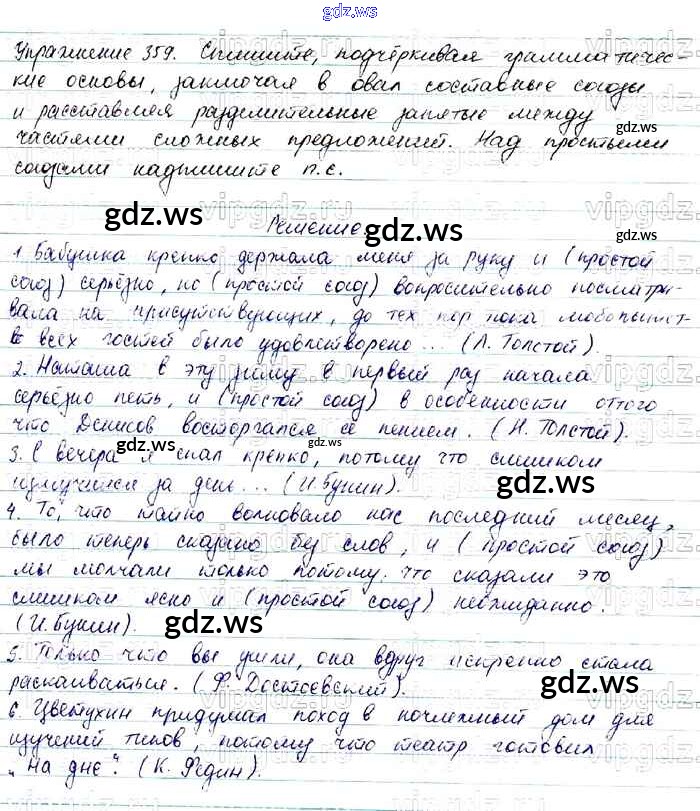 gdz.ws
Упражнение 359. Спишите, подчёркивая грамматичес-
кие основы, заключая в овал составные союзы
и расставляя разделительные запятые между
частями сложных предложений. Над простыми
союзами надпишите п.с.
Решение
1. Бабушка крепко держала меня за руку и (простой
союз) серьёзно, но (простой союз) вопросительно посматри-
вала на присутствующих, до тех пор пока любопытст-
во всех гостей было удовлетворено... (Л. Толстой).
2. Наташа в эту зиму в первый раз начала
серьёзно петь, и (простой союз) в особенности оттого
что Денисов восторгался её пением. (Н. Толстой).
3. С вечера я спал крепко, потому что слишком
измучился за день... (И. Бунин).
4. То, что тайно волновало нас последний месяц,
было теперь сказано без слов, и (простой союз)
мы молчали только потому, что сказали это
слишком ясно и (простой союз) неожиданно.
(И. Бунин).
5. Только что вы ушли, она вдруг искренно стала
раскаиваться. (Ф. Достоевский).
6. Цветухин придумал поход в ночлежный дом для
изучений типов, потому что театр готовил
„На дне". (К. Федин).